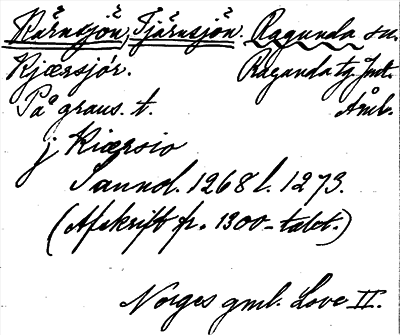 Kärnsjön, Tjärnsjön. Ragunda sn.
Kjærsjór. Ragunda tg. Jmt.
På grans. t. Åmb.
j Kiærsio
Sannol. 1268 l. 1273.
(Afskrift fr. 1300-talet.)
Norges gml. Love II.